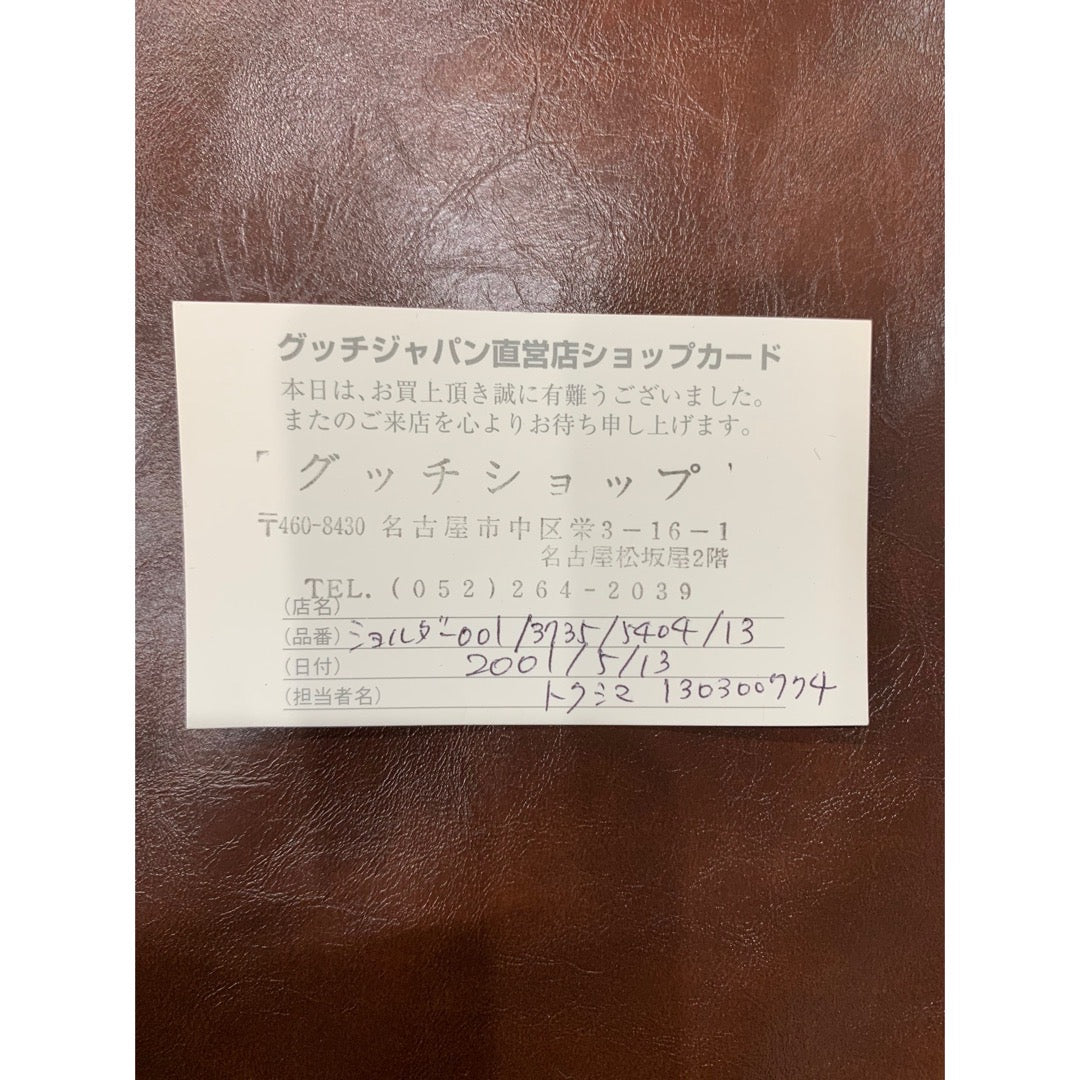 グッチジャパン直営店ショップカード
本日は、お買上頂き誠に有難うございました。
またのご来店を心よりお待ち申し上げます。
「グッチショップ'
〒460-8430 名古屋市中区栄3-16-1
名古屋松坂屋2階
TEL.(052)264-2039
(店名)
(品番) ショルダー001/3735/5404/13
(日付) 2001/5/13
(担当者名) トクシマ 130300774